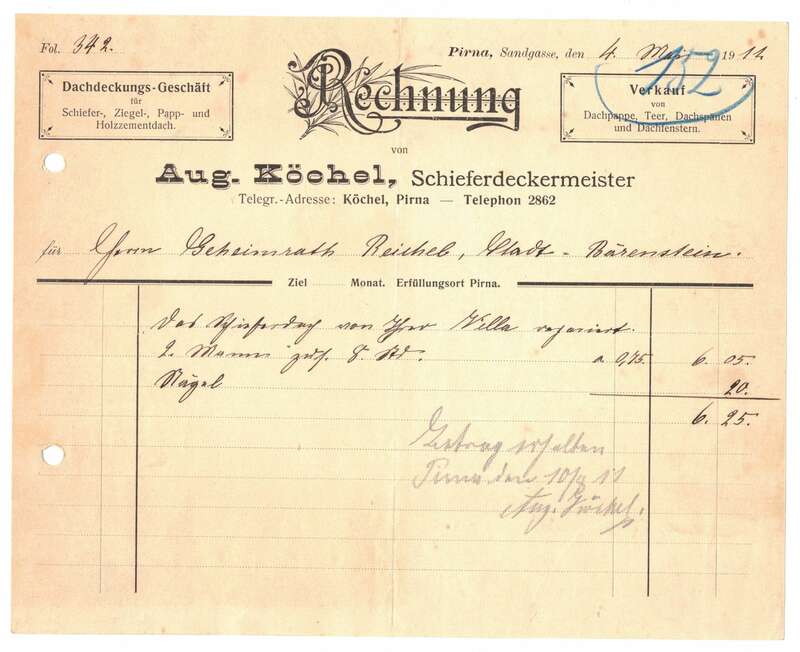 Fol. 342.
Pirna, Sandgasse, den 4. Mai 1911
152
Dachdeckungs-Geschäft
für
Schiefer-, Ziegel-, Papp- und
Holzzementdach.
Rechnung
Verkauf
von
Dachpappe, Teer, Dachspänen
und Dachfenstern.
von
Aug. Köchel, Schieferdeckermeister
Telegr.-Adresse: Köchel, Pirna — Telephon 2862
für Herrn Geheimrath Reichel, Stadt-Bärenstein.
Ziel Monat. Erfüllungsort Pirna.
Das Schieferdach von Ihrer Villa repariert.
2. Mann zus. 8. Std. a 0,75. 6. 05.
Nägel 20.
6. 25.
Betrag erhalten
Pirna den 11
Aug. Köchel.